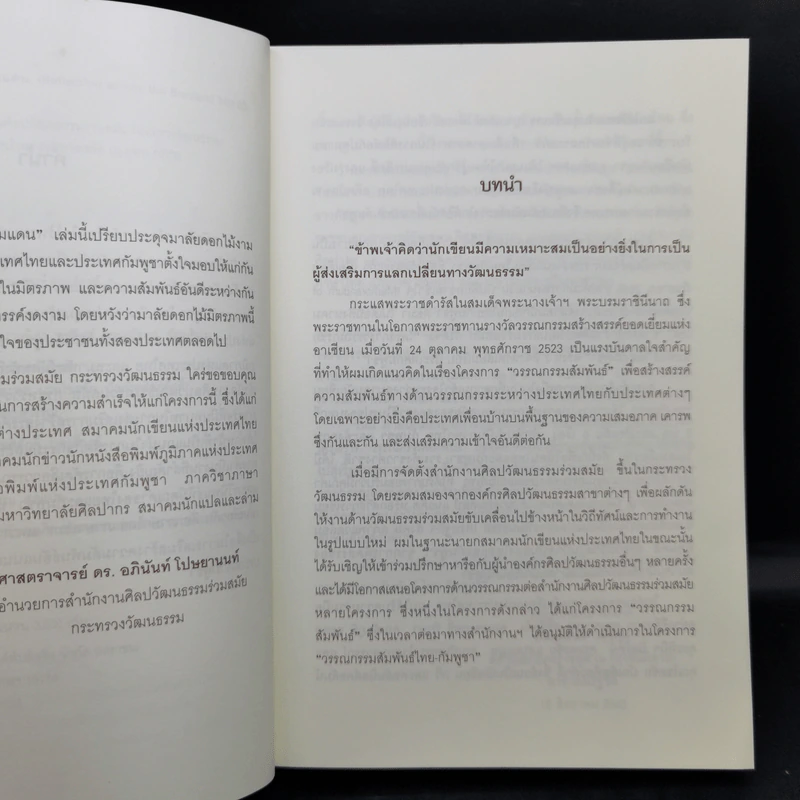 มแดน” เล่มนี้เปรียบประดุจมาลัยดอกไม้งาม
เทศไทยและประเทศกัมพูชาตั้งใจมอบให้แก่กัน
ในมิตรภาพ และความสัมพันธ์อันดีระหว่างกัน
รรค์งดงาม โดยหวังว่ามาลัยดอกไม้มิตรภาพนี้
ใจของประชาชนทั้งสองประเทศตลอดไป
มร่วมสมัย กระทรวงวัฒนธรรม ใคร่ขอขอบคุณ
นการสร้างความสำเร็จให้แก่โครงการนี้ ซึ่งได้แก่
ต่างประเทศ สมาคมนักเขียนแห่งประเทศไทย
าคมนักข่าวนักหนังสือพิมพ์ภูมิภาคแห่งประเทศ
อพิมพ์แห่งประเทศกัมพูชา ภาควิชาภาษา
มหาวิทยาลัยศิลปากร สมาคมนักแปลและล่าม
ศาสตราจารย์ ดร. อภินันท์ โปษยานนท์
อำนวยการสำนักงานศิลปวัฒนธรรมร่วมสมัย
กระทรวงวัฒนธรรม
บทนำ
“ข้าพเจ้าคิดว่านักเขียนมีความเหมาะสมเป็นอย่างยิ่งในการเป็น
ผู้ส่งเสริมการแลกเปลี่ยนทางวัฒนธรรม”
กระแสพระราชดำรัสในสมเด็จพระนางเจ้าฯ พระบรมราชินีนาถ ซึ่ง
พระราชทานในโอกาสพระราชทานรางวัลวรรณกรรมสร้างสรรค์ยอดเยี่ยมแห่ง
อาเซียน เมื่อวันที่ 24 ตุลาคม พุทธศักราช 2523 เป็นแรงบันดาลใจสำคัญ
ที่ทำให้ผมเกิดแนวคิดในเรื่องโครงการ “วรรณกรรมสัมพันธ์” เพื่อสร้างสรรค์
ความสัมพันธ์ทางด้านวรรณกรรมระหว่างประเทศไทยกับประเทศต่างๆ
โดยเฉพาะอย่างยิ่งคือประเทศเพื่อนบ้านบนพื้นฐานของความเสมอภาค เคารพ
ซึ่งกันและกัน และส่งเสริมความเข้าใจอันดีต่อกัน
เมื่อมีการจัดตั้งสำนักงานศิลปวัฒนธรรมร่วมสมัย ขึ้นในกระทรวง
วัฒนธรรม โดยระดมสมองจากองค์กรศิลปวัฒนธรรมสาขาต่างๆ เพื่อผลักดัน
ให้งานด้านวัฒนธรรมร่วมสมัยขับเคลื่อนไปข้างหน้าในวิถีทัศน์และการทำงาน
ในรูปแบบใหม่ ผมในฐานะนายกสมาคมนักเขียนแห่งประเทศไทยในขณะนั้น
ได้รับเชิญให้เข้าร่วมปรึกษาหารือกับผู้นำองค์กรศิลปวัฒนธรรมอื่นๆ หลายครั้ง
และได้มีโอกาสเสนอโครงการด้านวรรณกรรมต่อสำนักงานศิลปวัฒนธรรมร่วมสมัย
หลายโครงการ ซึ่งหนึ่งในโครงการดังกล่าว ได้แก่โครงการ “วรรณกรรม
สัมพันธ์” ซึ่งในเวลาต่อมาทางสำนักงานฯ ได้อนุมัติให้ดำเนินการในโครงการ
“วรรณกรรมสัมพันธ์ไทย-กัมพูชา”